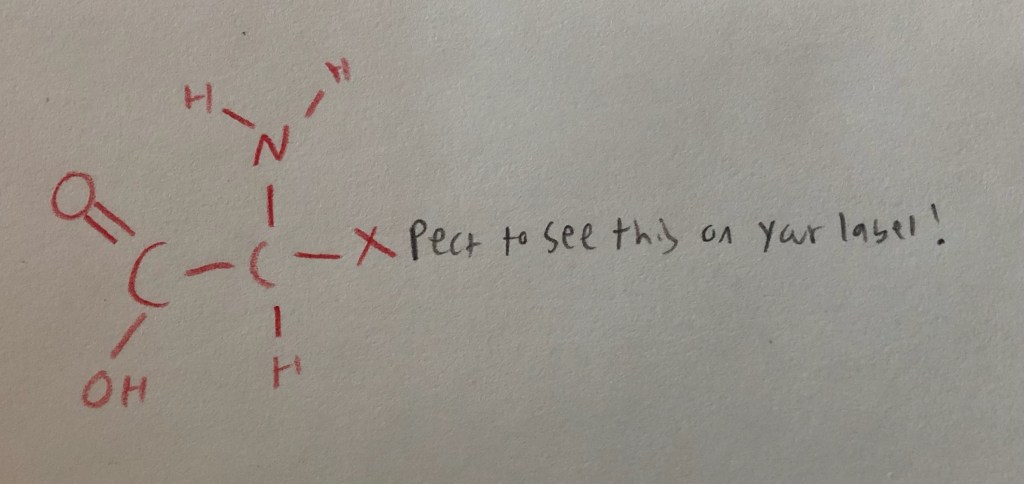 H H
N
O
C — C — X Pect to see this on your label!
OH H